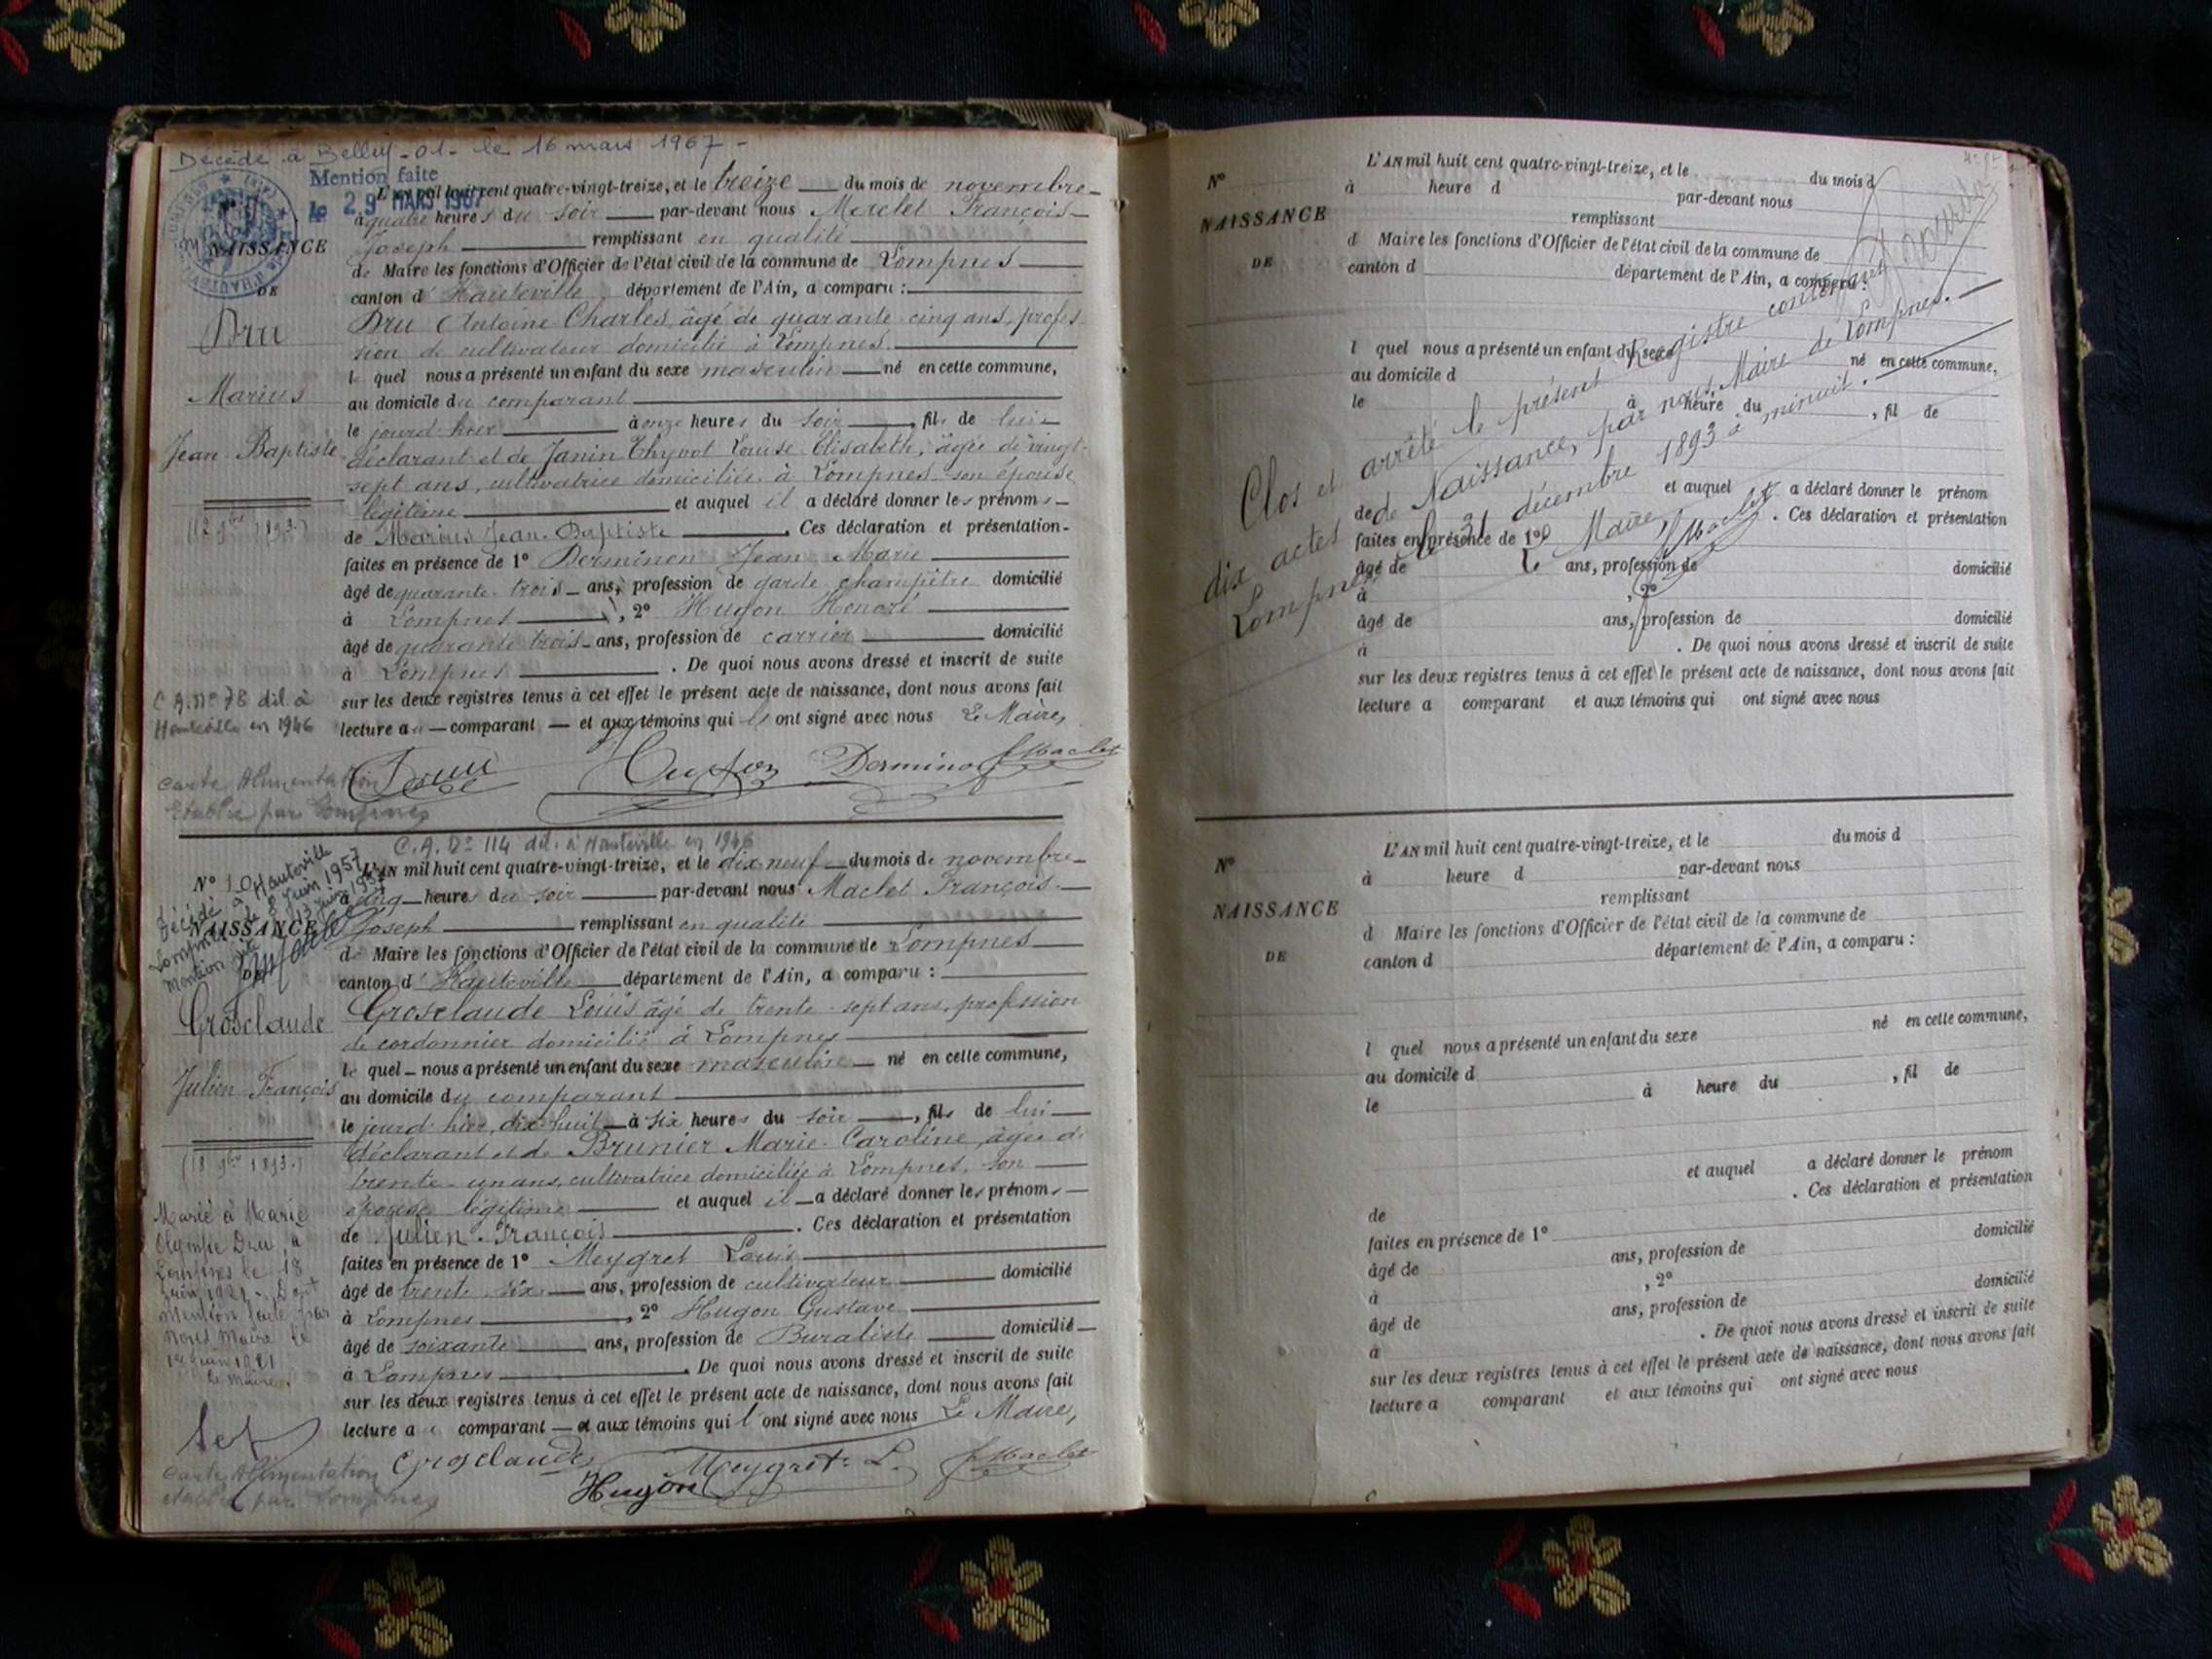 Décédé à Belley - 01 - le 16 mars 1967 -
Mention faite
le 29 MARS 1967
L'AN mil huit cent quatre-vingt-treize, et le treize du mois de novembre
à quatre heures du soir par-devant nous Maclet François
Joseph remplissant en qualité
de Maire les fonctions d'Officier de l'état civil de la commune de Lompnes
canton d'Hauteville, département de l'Ain, a comparu :
Dru Antoine Charles, âgé de quarante cinq ans, profes
sion de cultivateur domicilié à Lompnes.
le quel nous a présenté un enfant du sexe masculin né en cette commune,
au domicile du comparant
le jourd'hier à onze heures du soir, fils de lui
déclarant et de Janin Thyvot Louise Elisabeth, âgée de vingt-
sept ans, cultivatrice domiciliée à Lompnes son épouse
légitime et auquel il a déclaré donner les prénoms
de Marius Jean Baptiste. Ces déclaration et présentation
faites en présence de 1° Derminon Jean Marie
âgé de quarante trois ans, profession de garde champêtre domicilié
à Lompnes, 2° Hugon Honoré
âgé de quarante trois ans, profession de carrier domicilié
à Lompnes. De quoi nous avons dressé et inscrit de suite
sur les deux registres tenus à cet effet le présent acte de naissance, dont nous avons fait
lecture au comparant et aux témoins qui ont signé avec nous Le Maire,
Dru Hugon Derminon Maclet
NAISSANCE
DE
Dru
Marius
Jean-Baptiste
(12 9bre 1893.)
C.A. N° 78 dél. à
Hauteville en 1946
Carte Alimentation
Etablie par Lompnes
C.A. N° 114 dél. à Hauteville en 1946
N° 10
Décédé à Hauteville
Lompnes le 8 Juin 1957
Mention faite le 13 Juin 1957
NAISSANCE
Grosclaude
Julien François
(18 9bre 1893.)
Marié à Marie
Olympe Dru, à
Lompnes le 18
juin 1921. Dont
mention faite par
nous Maire le
19 juin 1921
Le Maire.
Carte Alimentation
établie par Lompnes
L'AN mil huit cent quatre-vingt-treize, et le dix-neuf du mois de novembre
à cinq heures du soir par-devant nous Maclet François
Joseph remplissant en qualité
de Maire les fonctions d'Officier de l'état civil de la commune de Lompnes
canton d'Hauteville département de l'Ain, a comparu :
Grosclaude Louis âgé de trente-sept ans, profession
de cordonnier domicilié à Lompnes
le quel nous a présenté un enfant du sexe masculin né en cette commune,
au domicile du comparant
le jourd'hier, dix-huit à six heures du soir, fils de lui
déclarant et de Brunier Marie-Caroline, âgée de
trente-un ans, cultivatrice domiciliée à Lompnes, son
épouse légitime et auquel il a déclaré donner les prénoms
de Julien-François. Ces déclaration et présentation
faites en présence de 1° Meygret Louis
âgé de trente six ans, profession de cultivateur domicilié
à Lompnes, 2° Hugon Gustave
âgé de soixante ans, profession de Buraliste domicilié
à Lompnes. De quoi nous avons dressé et inscrit de suite
sur les deux registres tenus à cet effet le présent acte de naissance, dont nous avons fait
lecture a comparant et aux témoins qui ont signé avec nous Le Maire,
Grosclaude Meygret L. Maclet
Hugon
N°
NAISSANCE
DE
L'AN mil huit cent quatre-vingt-treize, et le du mois d
à heure d par-devant nous
remplissant
d Maire les fonctions d'Officier de l'état civil de la commune de
canton d département de l'Ain, a comparu :
l quel nous a présenté un enfant du sexe né en cette commune,
au domicile d
le à heure du , fil de
et auquel a déclaré donner le prénom
de . Ces déclaration et présentation
faites en présence de 1°
âgé de ans, profession de domicilié
à , 2°
âgé de ans, profession de domicilié
à . De quoi nous avons dressé et inscrit de suite
sur les deux registres tenus à cet effet le présent acte de naissance, dont nous avons fait
lecture a comparant et aux témoins qui ont signé avec nous
Clos et arrêté le présent Registre contenant
dix actes de Naissance, par nous, Maire de Lompnes.
Lompnes, le 31 décembre 1893 à minuit.
Le Maire, Maclet
N°
NAISSANCE
DE
L'AN mil huit cent quatre-vingt-treize, et le du mois d
à heure d par-devant nous
remplissant
d Maire les fonctions d'Officier de l'état civil de la commune de
canton d département de l'Ain, a comparu :
l quel nous a présenté un enfant du sexe né en cette commune,
au domicile d
le à heure du , fil de
et auquel a déclaré donner le prénom
de . Ces déclaration et présentation
faites en présence de 1°
âgé de ans, profession de domicilié
à , 2°
âgé de ans, profession de domicilié
à . De quoi nous avons dressé et inscrit de suite
sur les deux registres tenus à cet effet le présent acte de naissance, dont nous avons fait
lecture a comparant et aux témoins qui ont signé avec nous